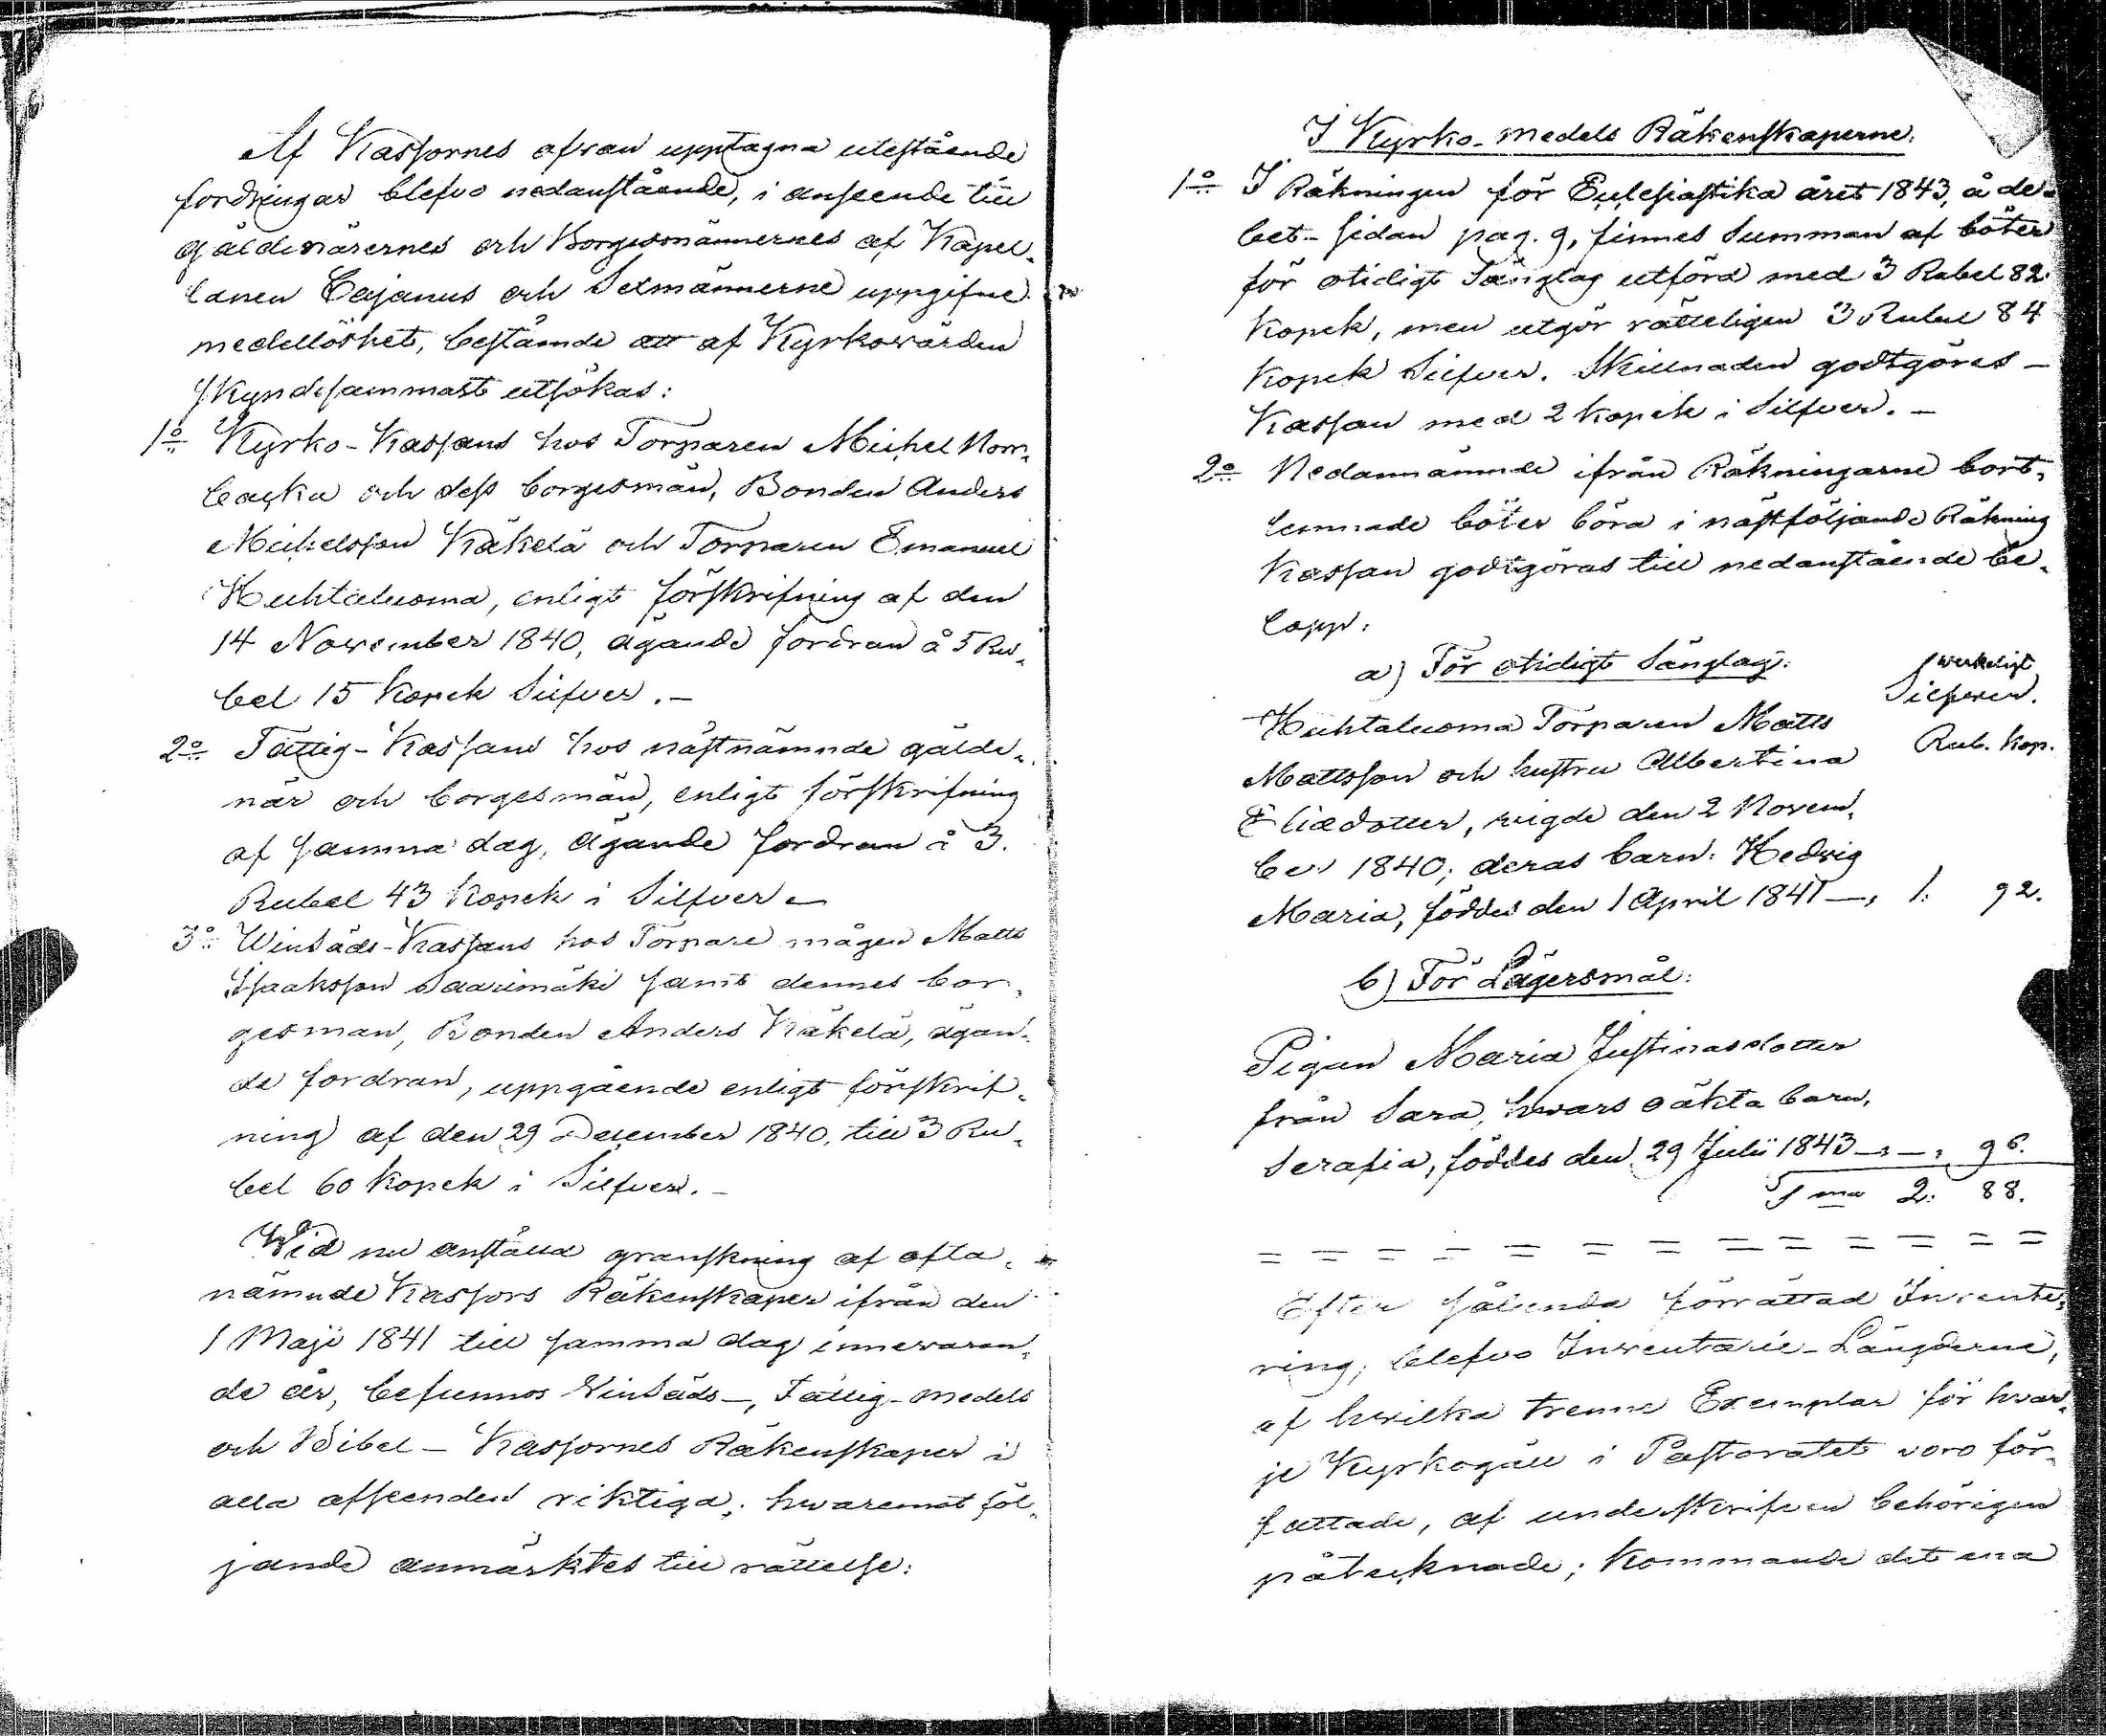 Af Kassornes ofvan upptagna utestående
fordringar blefvo nedanstående, i anseende till
gäldenärernes och Borgesmännernes af Kapel-
lanen Cajanus och Sexmännerne uppgifne
medellöshet, bestämde att af Kyrkovärden
skyndesammast utsökas:
1o Kyrko-Kassans hos Torparen Michel Norr-
backa och dess borgesmän, Bonden Anders
Michelsson Käkelä och Torparen Emanuel
Huhtaluoma, enligt förskrifning af den
14 November 1840, ägande fordran à 5 Ru-
bel 15 Kopek Silfver.-
2o Fattig-Kassans hos nästnämnde gälde-
när och borgesmän, enligt förskrifning
af samma dag, ägande fordran à 3.
Rubel 43 Kopek i Silfver.-
3o Winsäds-Kassans hos Torpare mågen Matts
Isaaksson Saarimäki samt dennes bor-
gesman, Bonden Anders Käkelä, ägan-
de fordran, uppgående enligt förskrif-
ning af den 29 December 1840, till 3 Ru-
bel 60 Kopek i Silfver.-
Wid nu anställd granskning af ofta-
nämnde Kassors Räkenskaper ifrån den
1 Maji 1841 till samma dag innevaran-
de år, befunnos Vinsäds-, Fattig-medels
och Bibel-Kassornes Räkenskaper i
alla afseenden riktiga; hvaremot föl-
jande anmärktes till rättelse:
I Kyrko-medels Räkenskaperne:
1o I Räkningen för Ecclesiastika året 1843, å de-
bet-sidan pag. 9, finnes Summan af böter
för otidigt Sänglag utförd med 3 Rubel 82
Kopek, men utgör rätteligen 3 Rubel 84
Kopek Silfver. Skillnaden godtgöres
Kassan med 2 kopek i Silfver.-
2o Nedannämnde ifrån Räkningarne bort-
lemnade böter böra i nästföljande Räkning
Kassan godtgöras till nedanstående be-
lopp:
a) För otidigt Sänglag: werkeligt
Silfver.
Huhtaluoma Torparen Matts
Mattsson och hustru Albertina Rub. Kop.
Eliædotter, vigde den 2 Novem-
ber 1840; deras barn: Hedvig
Maria, föddes den 1 April 1841 -, 1. 92.
b) För Lägersmål:
Pigan Maria Justinasdotter
från Sara, hwars oäkta barn,
Serafia, föddes den 29 Julii 1843 -,-, 96.
Sma 2: 88.
= = = = = = = = = = = = =
Efter sålunda förrättad Invente-
ring, blefvo Inventarie-Längderne,
af hvilka trenne Exemplar för hvar-
je Kyrkogäll i Pastoratet voro för-
fattade, af underskrifven behörigen
påtecknade; Kommande det ena